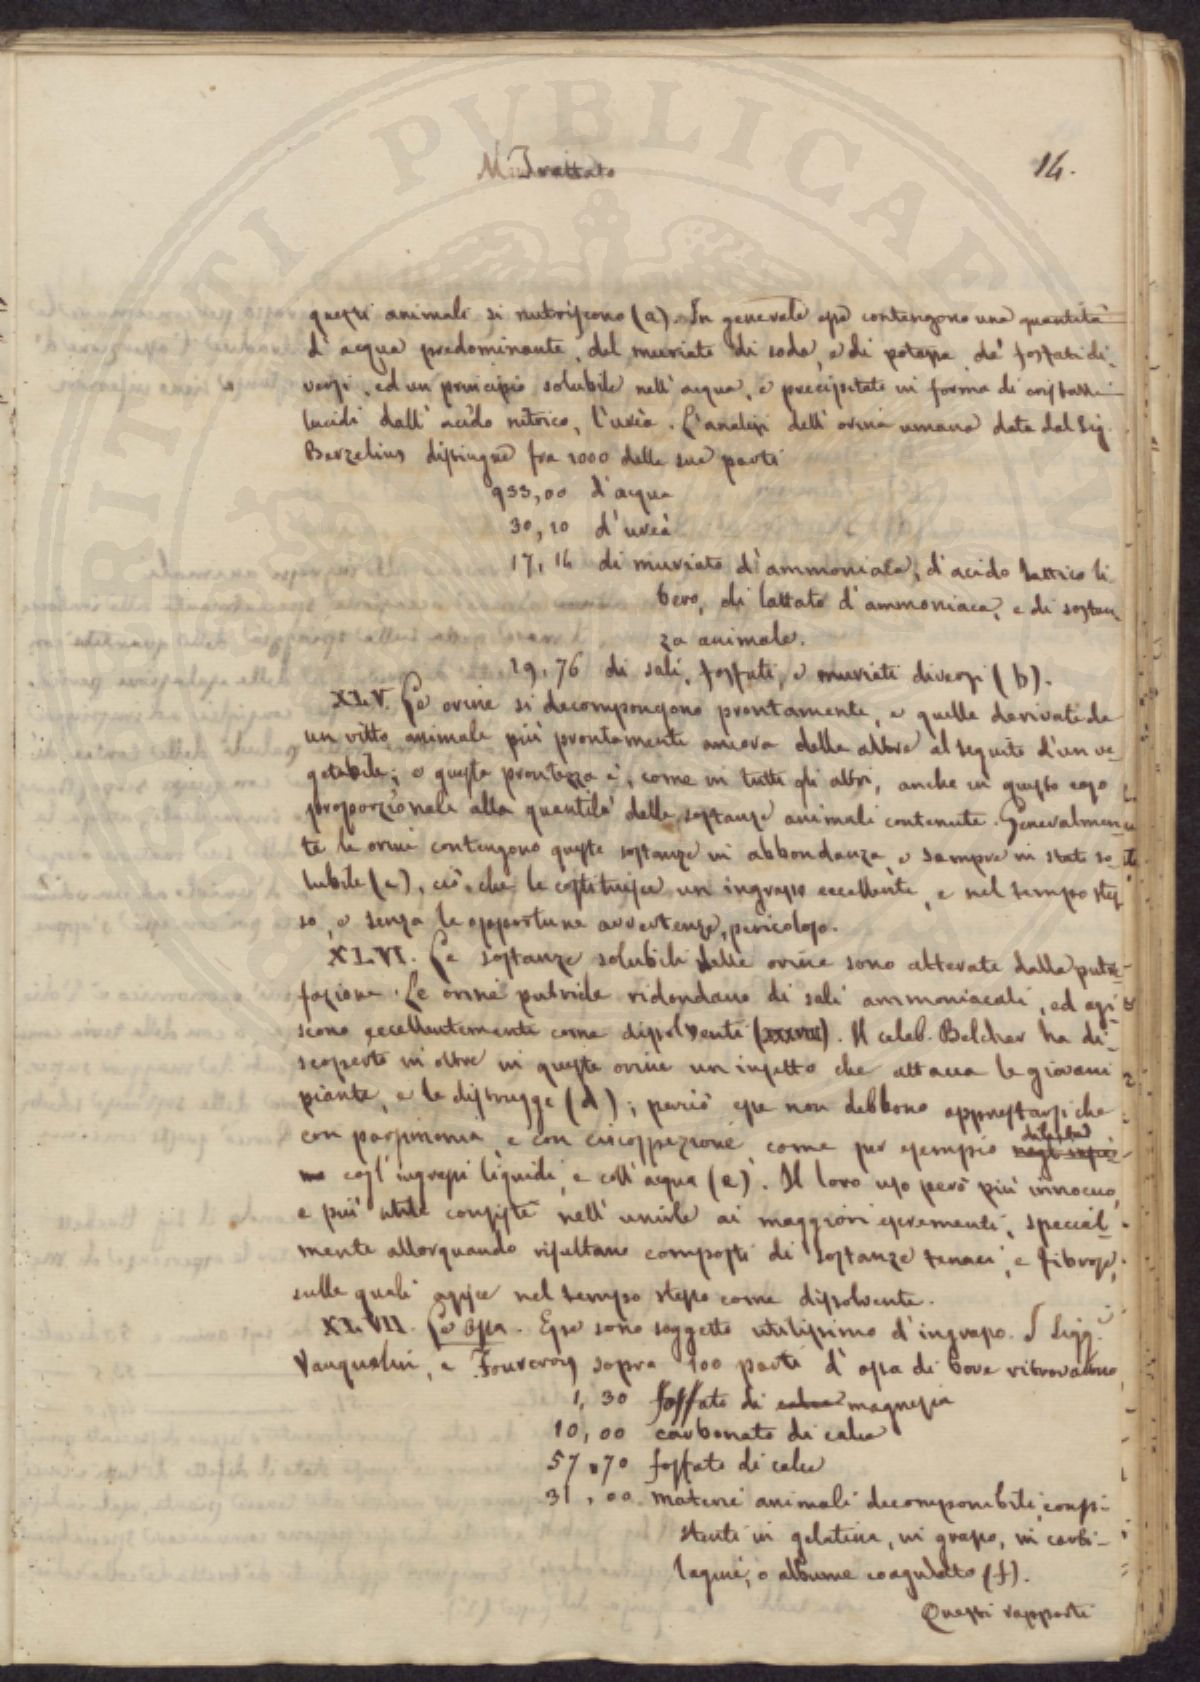 Trattato
14.
questi animali si nutriscono (a). In generale esse contengono una quantità
d'acqua predominante, del muriato di soda, e di potassa, de' fosfati di-
versi, ed un principio solubile nell'acqua, e precipitato in forma di cristalli
lucidi dall'acido nitrico, l'urèa. L'analisi dell'orina umana data dal Sig.
Berzelius distingue fra 1000 delle sue parti
933,00 d'acqua
30,10 d'urèa
17,14 di muriato d'ammoniaca, d'acido lattico li-
bero, di lattato d'ammoniaca, e di sostan-
za animale.
19,76 di sali, fosfati, e muriati diversi (b).
XLV. Le orine si decompongono prontamente, e quelle derivate da
un vitto animale più prontamente ancora delle altre al seguito d'un ve-
getabile; e questa prontezza è, come in tutti gli altri, anche in questo caso
proporzionale alla quantità delle sostanze animali contenute. Generalmen-
te le orine contengono queste sostanze in abbondanza, e sempre in stato so-
lubile (c), ciò che le costituisce un ingrasso eccellente, e nel tempo stes-
so, e senza le opportune avvertenze, pericoloso.
XLVI. Le sostanze solubili delle orine sono alterate dalla putre-
fazione. Le orine putride ridondano di sali ammoniacali, ed agi-
scono eccellentemente come dissolventi (XXXVIII). Il celeb. Belcher ha di-
scoperto in oltre in queste orine un insetto che attacca le giovani
piante, e le distrugge (d); perciò esse non debbono apprestarsi che
con parsimonia, e con circospezione, come per esempio diluendo
cogl'ingrassi liquidi, e coll'acqua (e). Il loro uso però più innocuo,
e più utile consiste nell'unirle ai maggiori escrementi, special-
mente allorquando risultano composti di sostanze tenaci, e fibrose,
sulle quali agisce nel tempo stesso come dissolvente.
XLVII. Le Ossa. Esse sono soggetto utilissimo d'ingrasso. I Sigg.
Vauquelin, e Fourcroy sopra 100 parti d'ossa di bove ritrovarono
1,30 fosfato di magnesia
10,00 carbonato di calce
57,70 fosfato di calce
31,00 materie animali decomponibili, consi-
stenti in gelatina, in grasso, in carti-
lagine, o albume coagulato (f).
Questi rapporti